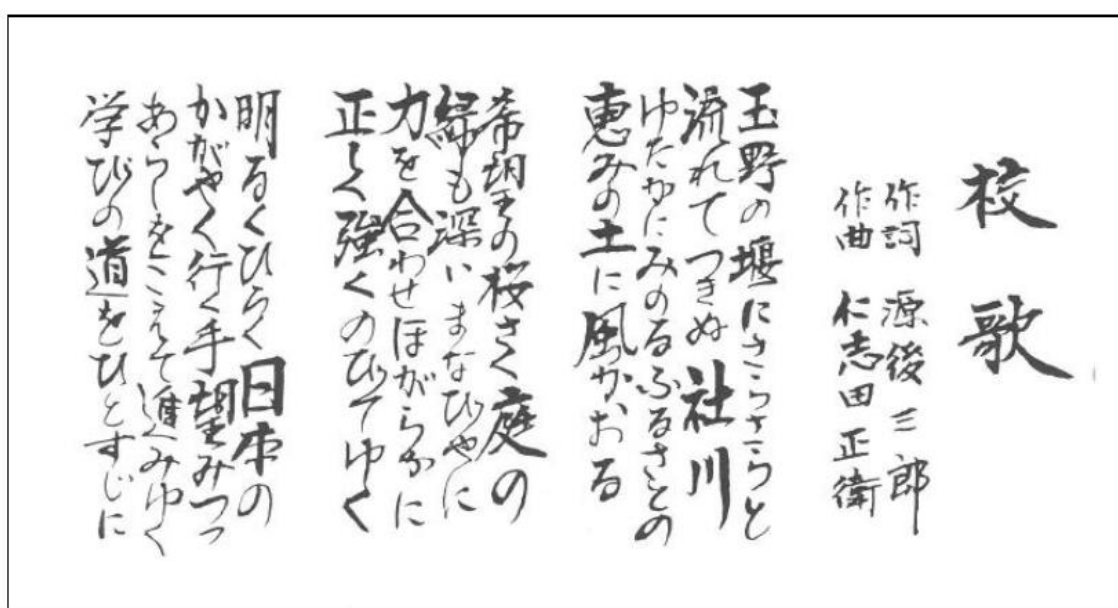 校歌
作詞 源後三郎
作曲 仁志田正衛
玉野の堰にさらさらと
流れてつきぬ社川
ゆたかにみのるふるさとの
恵みの土に風かおる
希望の桜さく庭の
緑も深いまなびやに
力を合わせほがらかに
正しく強くのびてゆく
明るくひらく日本の
かがやく行く手望みつつ
あらしをこえて進みゆく
学びの道をひとすじに